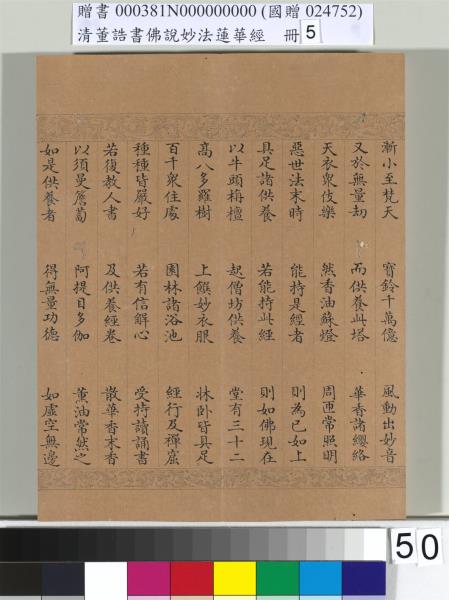 贈書 000381N000000000 (國贈 024752)
清董誥書佛說妙法蓮華經 冊 5
漸小至梵天 寶鈴千萬億 風動出妙音
又於無量劫 而供養此塔 華香諸瓔珞
天衣眾伎樂 然香油蘇燈 周匝常照明
惡世法末時 能持是經者 則為已如上
具足諸供養 若能持此經 則如佛現在
以牛頭栴檀 起僧坊供養 堂有三十二
高八多羅樹 上饌妙衣服 牀臥皆具足
百千眾住處 園林諸浴池 經行及禪窟
種種皆嚴好 若有信解心 受持讀誦書
若復教人書 及供養經卷 散華香末香
以須曼薝蔔 阿提目多伽 薰油常然之
如是供養者 得無量功德 如虛空無邊
50